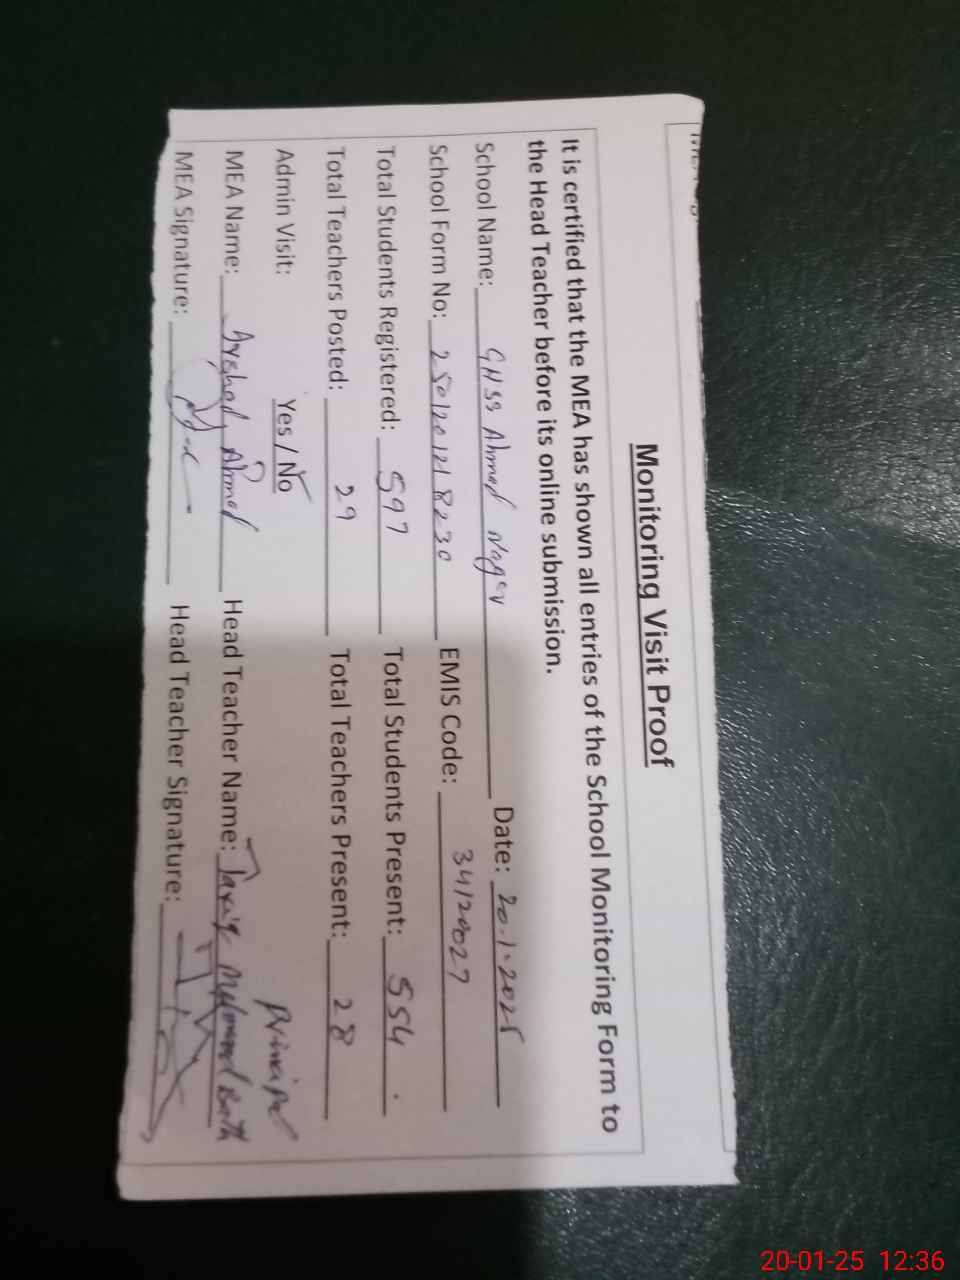 Monitoring Visit Proof
It is certified that the MEA has shown all entries of the School Monitoring Form to
the Head Teacher before its online submission.
School Name: GHSS Ahmed Nagar Date: 20.1.2025
School Form No: 2501201218230 EMIS Code: 34120027
Total Students Registered: 597 Total Students Present: 554
Total Teachers Posted: 29 Total Teachers Present: 28
Admin Visit: Yes / No Principal
MEA Name: Arshad Ahmed Head Teacher Name: Tariq
MEA Signature: Head Teacher Signature:
20-01-25 12:36